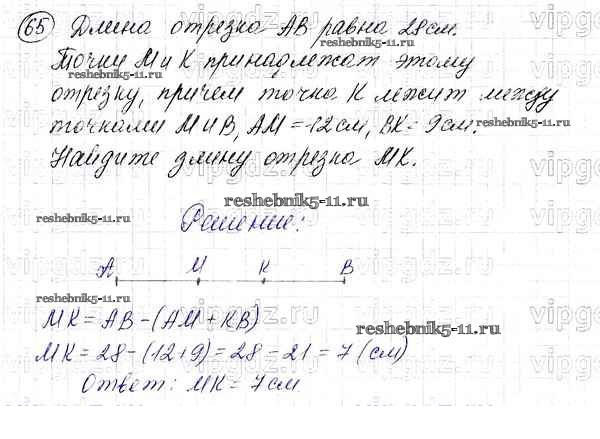 65 Длина отрезка AB равна 28 см.
Точки M и K принадлежат этому
отрезку, причем точка K лежит между
точками M и B, AM = 12 см, BK = 9 см.
Найдите длину отрезка MK.
Решение:
A M K B
MK = AB - (AM + KB)
MK = 28 - (12+9) = 28 - 21 = 7 (см)
Ответ: MK = 7 см
reshebnik5-11.ru
reshebnik5-11.ru
reshebnik5-11.ru
reshebnik5-11.ru
reshebnik5-11.ru
reshebnik5-11.ru
reshebnik5-11.ru
reshebnik5-11.ru
vipgdz.ru